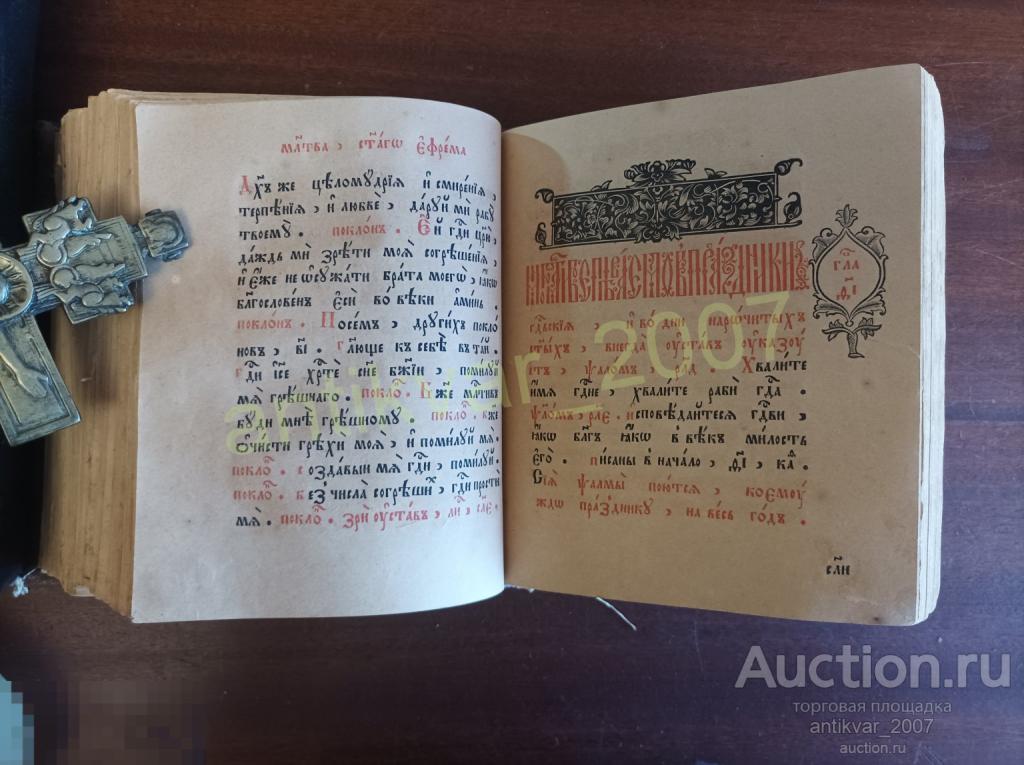 мл҃тва, ст҃а́гѡ єфре́ма
Дх҃ъ же цѣломꙋ́дрїѧ и҆ смире́нїѧ,
терпѣ́нїѧ, и҆ любвѐ, да́рꙋй мѝ рабꙋ̀
твоемꙋ̀. покло́нъ. Є҆́й гдⷭ҇и цр҃ю̀,
да́ждь мѝ зрѣ́ти моѧ̀ согрѣше́нїѧ,
и҆ є҆́же не ѡ҆сꙋжа́ти бра́та моегѡ̀, ꙗ҆́кѡ
благослове́нъ є҆сѝ во́ вѣки а҆ми́нь.
покло́нъ. По се́мъ, дрꙋги́хъ покло
но́въ, в҃і. гл҃юще къ себѣ̀ въ та́й.
гдⷭ҇и і҆с҃е хрⷭ҇тѐ сн҃е бж҃їи, поми́лꙋй
мѧ̀ грѣ́шнаго. покло́. Бж҃е млⷭ҇тивъ
бꙋ́ди мнѣ̀ грѣ́шномꙋ. покло́. бж҃е
ѡ҆чи́сти грѣхѝ моѧ̀, и҆ поми́лꙋй мѧ̀.
покло́. созда́вый мѧ̀ гдⷭ҇и, поми́лꙋй.
покло́. без̾ числа̀ согрѣши́х, гдⷭ҇и простѝ
мѧ̀. покло́. зрѝ ᲂу҆ста́въ, ли́, сл҃є.
гдⷭ҇ьскїѧ, и҆ во́ дни нарочи́тыхъ
ст҃ы́хъ, внегда̀ ᲂу҆ста́въ ᲂу҆ка́зꙋ
етъ, ѱало́мъ, рл҃д. Хвали́те
и҆́мѧ гдⷭ҇не, хвали́те рабѝ гдⷭ҇а.
ѱало́мъ, рл҃є. и҆сповѣ́дайтесѧ гдⷭ҇ви,
ꙗ҆́кѡ бл҃гъ ꙗ҆́кѡ в вѣ́къ ми́лость
є҆гѡ̀. пи́саны в нача́ло, д҃і, ка҃.
Сїѧ̀ ѱалмы̀ пою́тсѧ, коемꙋ́
ждѡ пра́здникꙋ, на ве́сь го́дъ.
гла
д҃і
сли
antikvar_2007
Auction.ru
торговая площадка
antikvar_2007
auction.ru